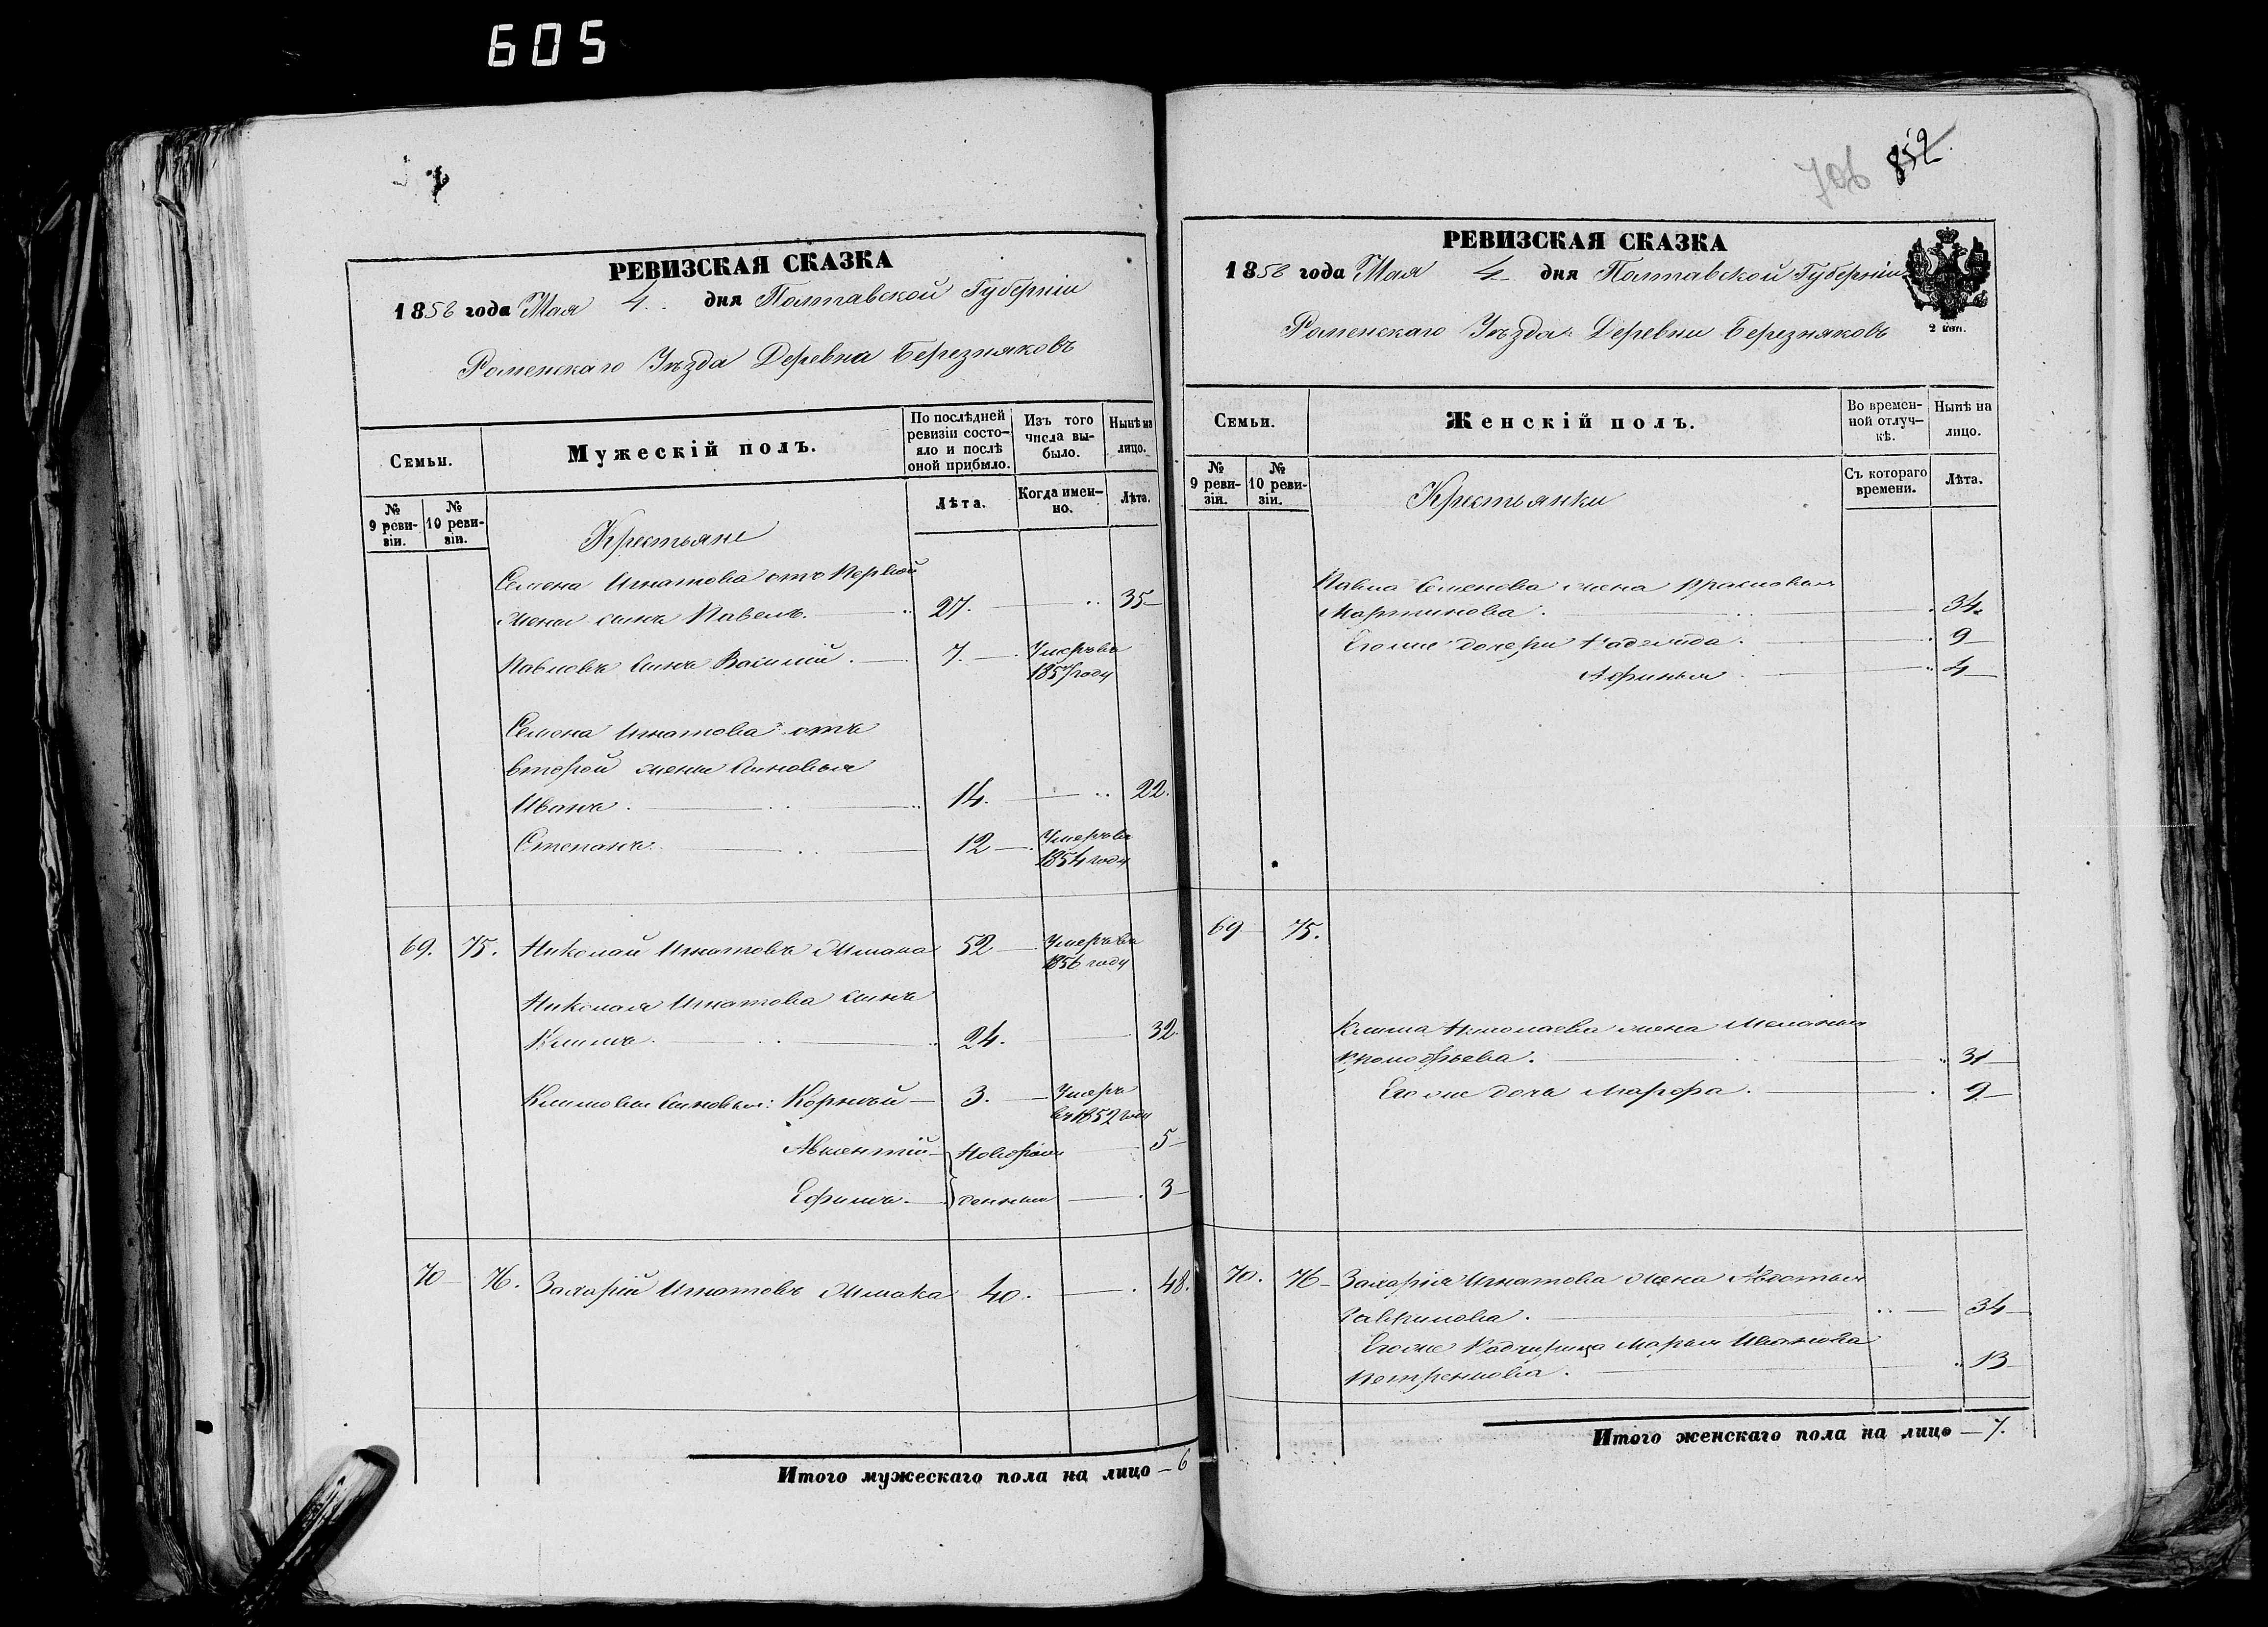 605
РЕВИЗСКАЯ СКАЗКА
1858 года Мая 4 дня Полтавской Губерніи
Роменскаго Уѣзда Деревни Березняковъ
Семьи.
Мужескій полъ.
По послѣдней ревизіи состо-яло и послѣ оной прибыло.
Изъ того числа вы-было.
Нынѣ на лицо.
№ 9 реви-зіи.
№ 10 реви-зіи.
Лѣта.
Когда имен-но.
Лѣта.
Крестьяне
Семена Игнатова отъ первой
жены сынъ Павелъ. 27. 35
Павловъ сынъ Василий. 7. Умеръ въ
1857 году
Семена Игнатова отъ
второй жены сыновья
Иванъ 14. 22.
Степанъ 12 Умеръ въ
1854 году
69. 75. Николай Игнатовъ 52 Умеръ въ
1856 году
Николая Игнатова сынъ
Климъ 24. 32.
Климовы сыновья: Корнѣй 3. Умеръ
въ 1852 году
Авксентій Новорож 5
Ефимъ денные 3
70 76. Захарій Игнатовъ 40. 48.
Итого мужескаго пола на лицо 6
706 852
РЕВИЗСКАЯ СКАЗКА
1858 года Мая 4 дня Полтавской Губерніи
2 коп.
Роменскаго Уѣзда Деревни Березняковъ
Семьи.
Женскій полъ.
Во времен-ной отлуч-кѣ.
Нынѣ на лицо.
№ 9 реви-зіи.
№ 10 реви-зіи.
Съ котораго времени.
Лѣта.
Крестьянки
Павла Семенова жена Прасковья
Мартинова. 34.
Его же дочери Надежда 9
Афинья 4
69 75.
Клима Николаева жена Меланья
Прокофьева. 31
Его же дочь Марфа. 9
70. 76 Захарія Игнатова жена
Гаврилова. 34
Его же Падчирица Марья Иванова
13
Итого женскаго пола на лицо 7.